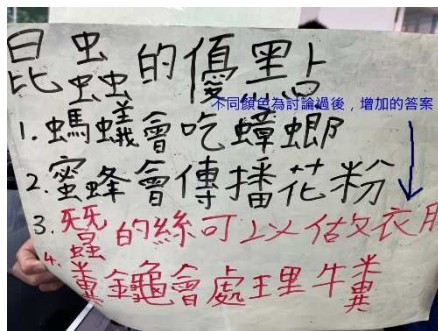 昆蟲的優點
不同顏色為討論過後，增加的答案
1.螞蟻會吃蟑螂
2.蜜蜂會傳播花粉
3.蠶的絲可以做衣服
4.糞金龜會處理牛糞